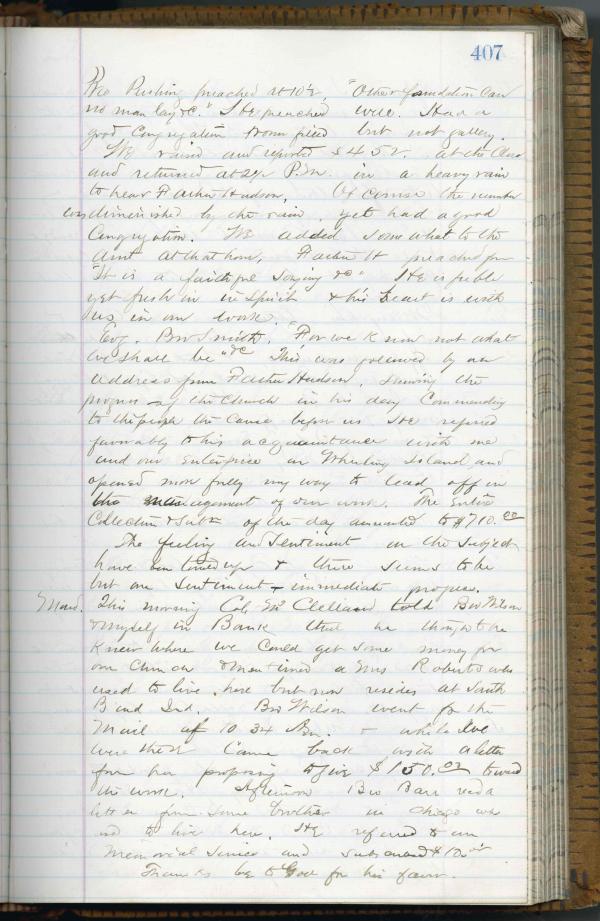 407
Bro Pershing preached at 10½, "Other foundation can
no man lay &c." He preached well. Had a
good Congregation Room filled but not gallery.
We raised and reported $452. at the close
and returned at 2½ P.M. in a heavy rain
to hear Father Hudson, Of course the number
was diminished by the rain, yet had a good
Congregation. We added somewhat to the
amt at that hour, Father H preached from
"It is a faithful saying &c" He is feeble
yet fresh in in spirit & his heart is with
us in our work.
Evg. Bro Smith, "For we know not what
we shall be" &c This was followed by an
address from Father Hudson, showing the
progress of the Church in his day Commending
to the people the Cause before us He referred
favorably to his acquaintance with me
and our Enterprise on Wheeling Island and
opened more fully my way to lead off in
the management of our work. The Entire
Collection & Subs of the day amounted to $710.00
The feeling and Sentiment on the subject
have been toned up & there seems to be
but one Sentiment – immediate progress.
Mond. This morning Col. McClelland told Bro Wilson
& myself in Bank that he thought he
knew where we could get some money for
our Church & mentioned a Mrs Roberts who
used to live here but now resides at South
Bend Ind. Bro Wilson went for the
mail at 10.34 Am. & while I've
were there Came back with a letter
from her proposing to give $150.00 toward
the work. Afternoon Bro Barr read a
letter from some brother in Chicago who
used to live here. He referred to our
Memorial Service and subscribed $10.00
Thanks be to God for his favor.